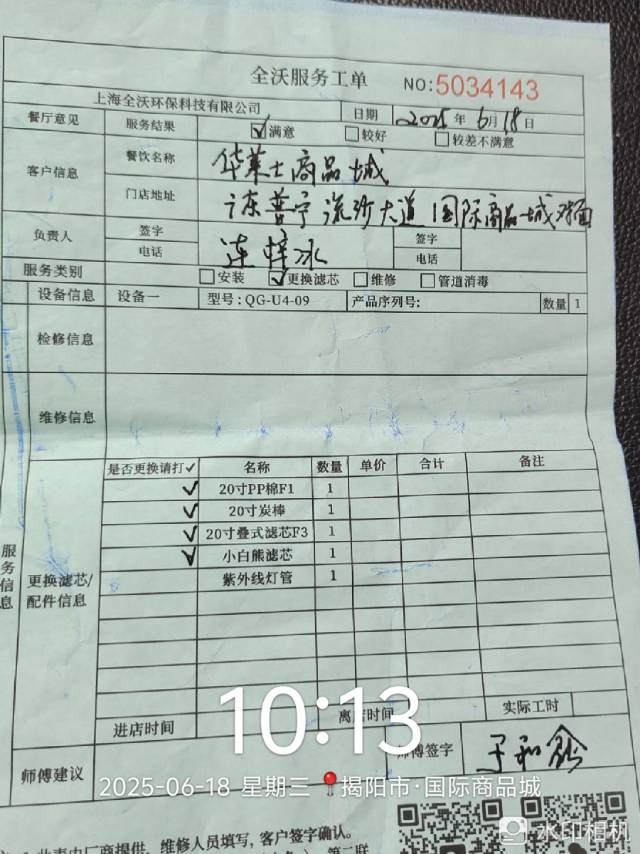 全沃服务工单 NO:5034143
上海全沃环保科技有限公司 日期 2025年6月18日
餐厅意见 服务结果 ☑满意 □较好 □较差不满意
客户信息 餐饮名称 华莱士商品城
门店地址 广东普宁流沙大道国际商品城对面
负责人 签字 签字
电话 电话
服务类别 □安装 ☑更换滤芯 □维修 □管道消毒
设备信息 设备一 型号:QG-U4-09 产品序列号: 数量 1
检修信息
维修信息
服务信息
更换滤芯/配件信息
是否更换请打✓ 名称 数量 单价 合计 备注
✓ 20寸PP棉F1 1
✓ 20寸炭棒 1
✓ 20寸叠式滤芯F3 1
✓ 小白熊滤芯 1
紫外线灯管 1
进店时间 离店时间 实际工时
师傅建议 师傅签字
10:13
2025-06-18 星期三 揭阳市·国际商品城
此表由厂商提供、维修人员填写,客户签字确认。
第二联
水印相机